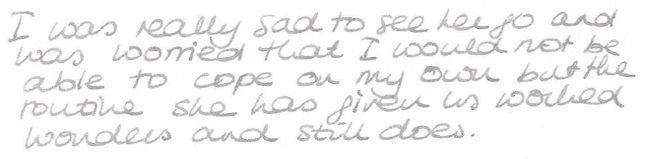 I was really sad to see her go and
was worried that I would not be
able to cope on my own but the
routine she has given us worked
wonders and still does.